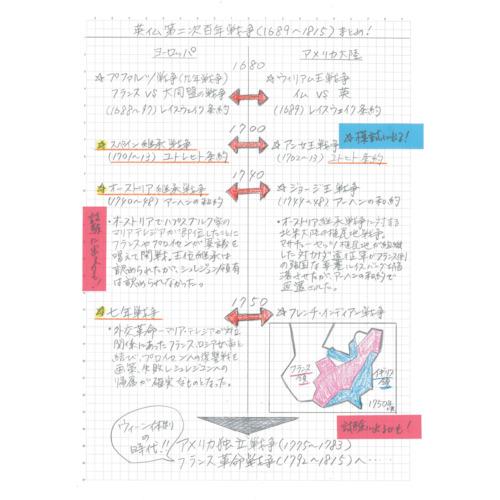 英仏第二次百年戦争(1689〜1815)まとめ!
ヨーロッパ
アメリカ大陸
1680
☆プファルツ戦争(九年戦争)
フランス VS 大同盟の戦争
(1688〜97)レイスウェイク条約
☆ウィリアム王戦争
仏 VS 英
(1689)レイスウェイク条約
1700
☆模試に出る!
☆スペイン継承戦争
(1701〜13)ユトレヒト条約
☆アン女王戦争
(1702〜13)ユトレヒト条約
1740
☆オーストリア継承戦争
(1740〜48)アーヘンの和約
☆ジョージ王戦争
(1744〜48)アーヘンの和約
試験に出るかも!
・オーストリアでハプスブルク家の
マリアテレジアが即位したことに
フランスやプロイセンが異議を
唱えて開戦。王位継承は
認められたが、シュレジエン領有
は認められなかった。
・オーストリア継承戦争に対する
北米大陸の植民地戦争。
マサチューセッツ植民地が組織
した
がフランス側
の強固な要塞ルイスバーグを陥
落させたが、アーヘンの和約で
返還された。
1750
☆七年戦争
☆フレンチ・インディアン戦争
・外交革命―マリア・テレジアが対立
関係にあったフランス、ロシアが手を
結び、プロイセンへの復讐戦を
画策。失敗しシュレジエンの
帰属が確実なものとなった。
フランス領
イギリス領
1750年頃
試験に出るかも!
ウィーン体制の時代!!
アメリカ独立戦争(1775〜1783)
フランス革命戦争(1792〜1815)へ……